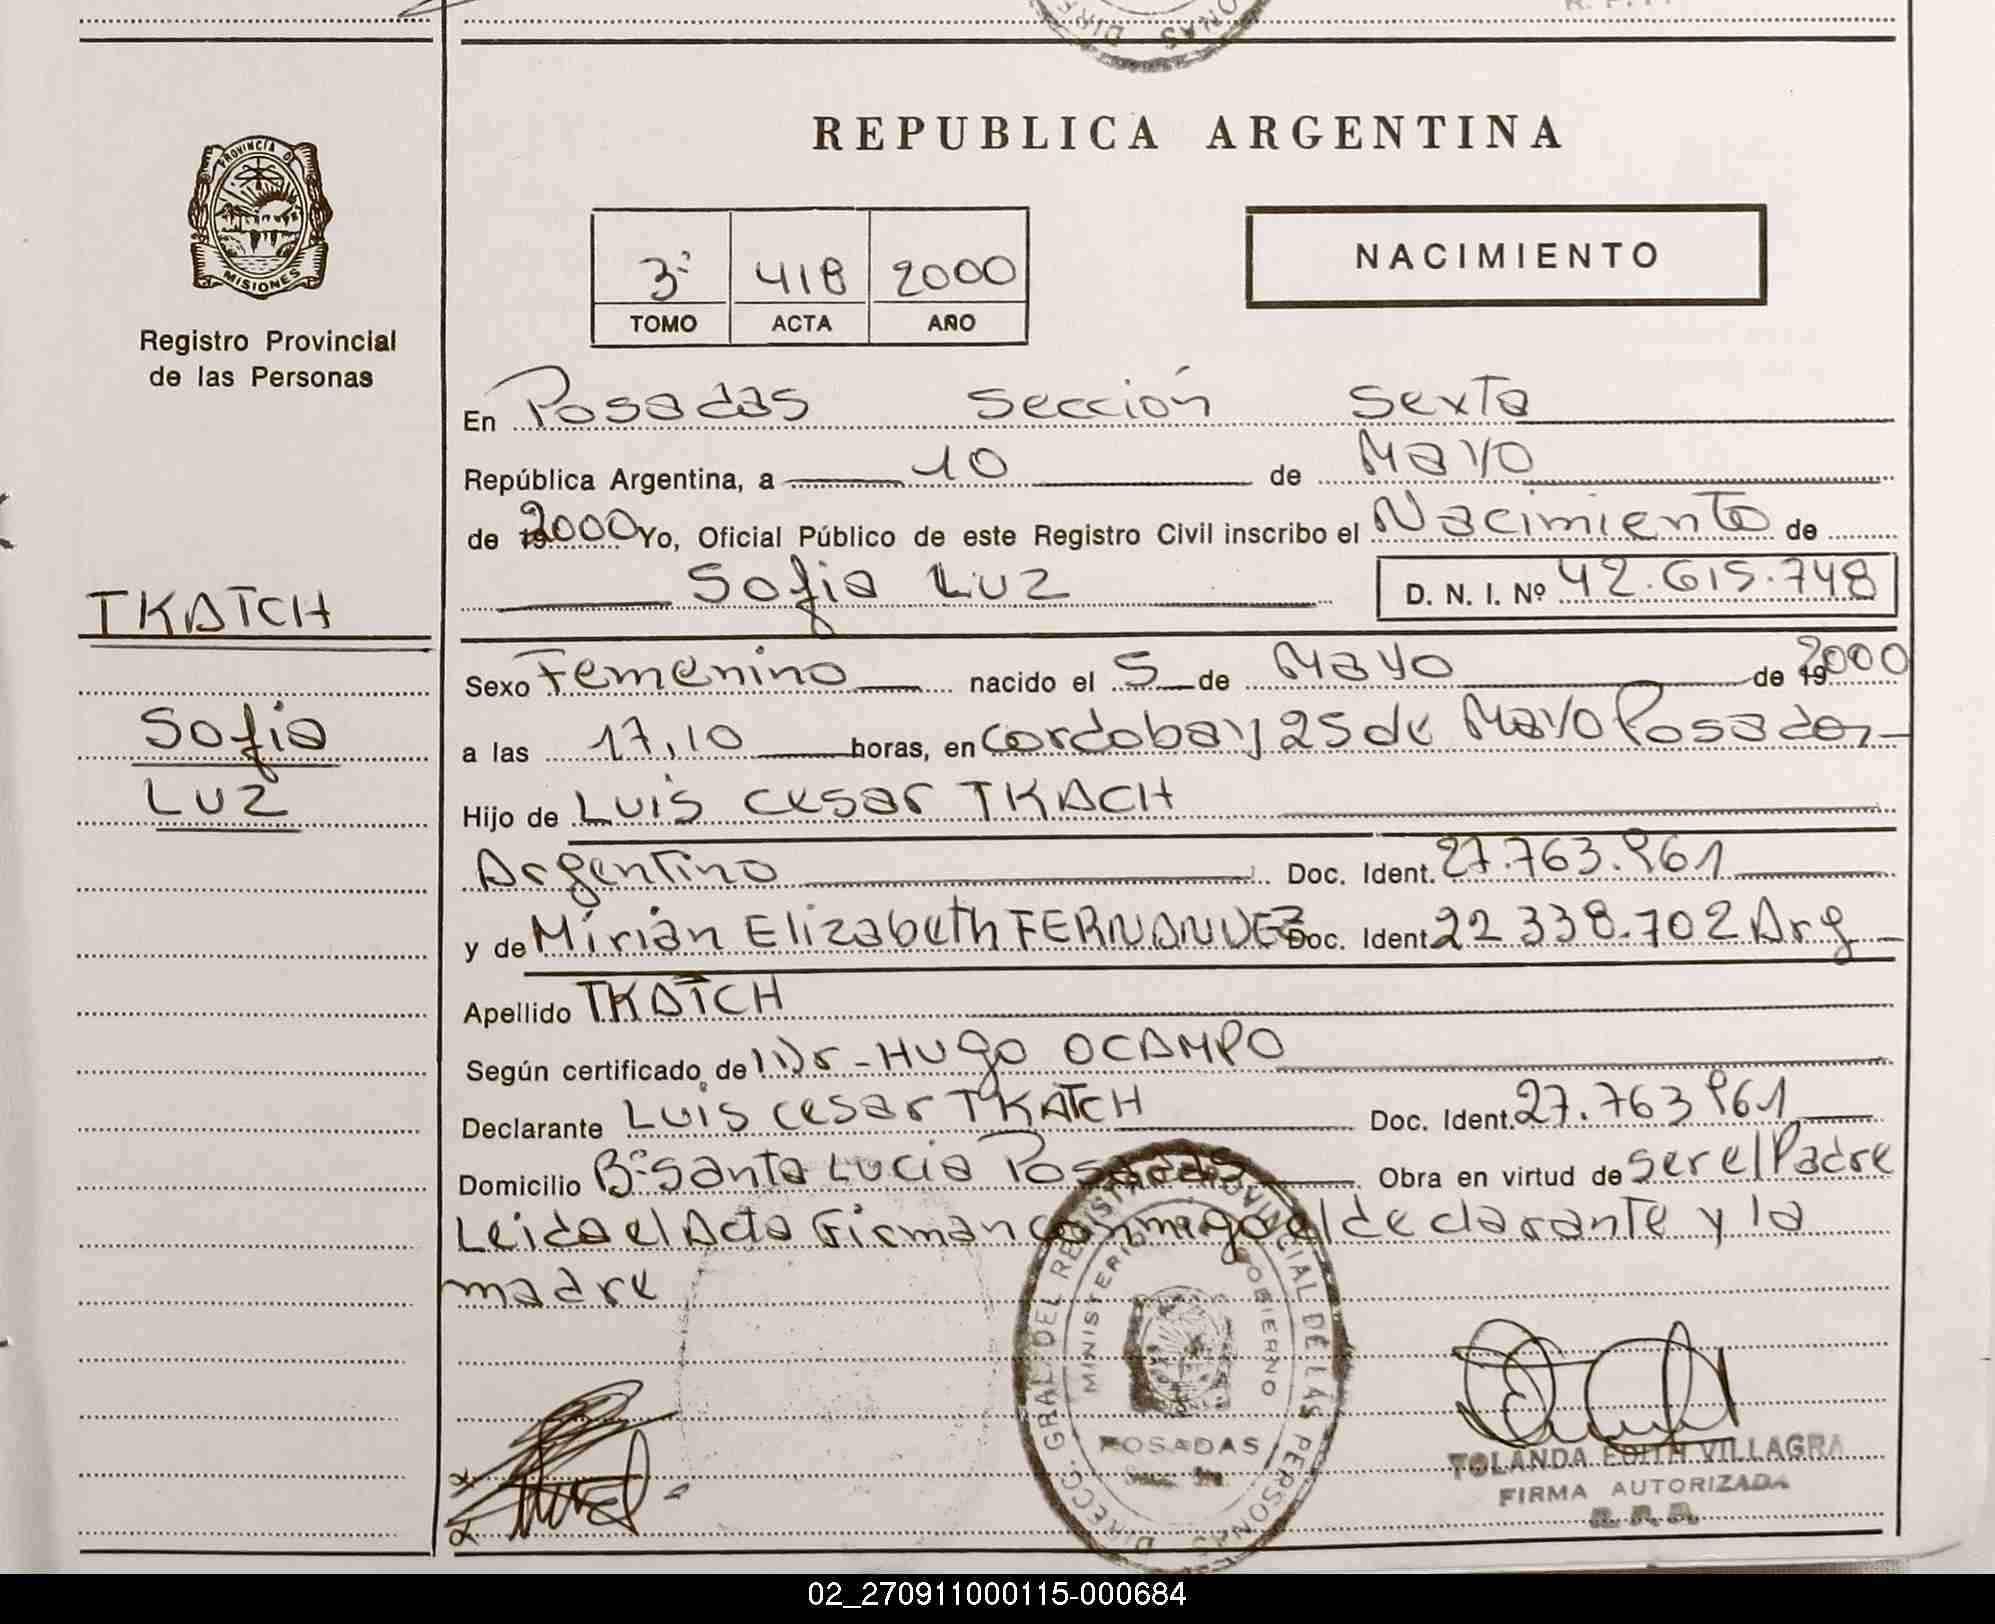 REPUBLICA ARGENTINA
PROVINCIA DE
MISIONES
Registro Provincial
de las Personas
3º 418 2000
TOMO ACTA AÑO
NACIMIENTO
En Posadas Sección Sexta
República Argentina, a 10 de Mayo
de 19 2000 Yo, Oficial Público de este Registro Civil inscribo el Nacimiento de
Sofia Luz D. N. I. Nº 42.615.748
TKATCH
Sofia
Luz
Sexo Femenino nacido el 5 de Mayo de 19 2000
a las 17,10 horas, en Cordoba y 25 de Mayo Posadas
Hijo de Luis Cesar TKACH
Argentino Doc. Ident. 27.763.961
y de Mirian Elizabeth FERNANDEZ Doc. Ident. 22 338.702 Arg
Apellido TKATCH
Según certificado de Dr - HUGO OCAMPO
Declarante Luis Cesar TKATCH Doc. Ident. 27.763 961
Domicilio Bº Santa Lucia Posadas Obra en virtud de ser el Padre
Leida el Acta Firman conmigo el declarante y la
madre
DIRECC. GRAL. DEL REGISTRO PROVINCIAL DE LAS PERSONAS
MINISTERIO GOBIERNO
POSADAS
YOLANDA EDITH VILLAGRA
FIRMA AUTORIZADA
R. P. P.
02_270911000115-000684